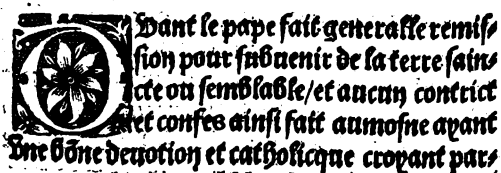 Quant le pape fait generalle remis⸗
sion pour subuenir de la terre sain⸗
cte ou semblable/et aucun contrict
et confes ainsi fait aumosne ayant
Vne bõne deuotion et catholicque croyant par⸗